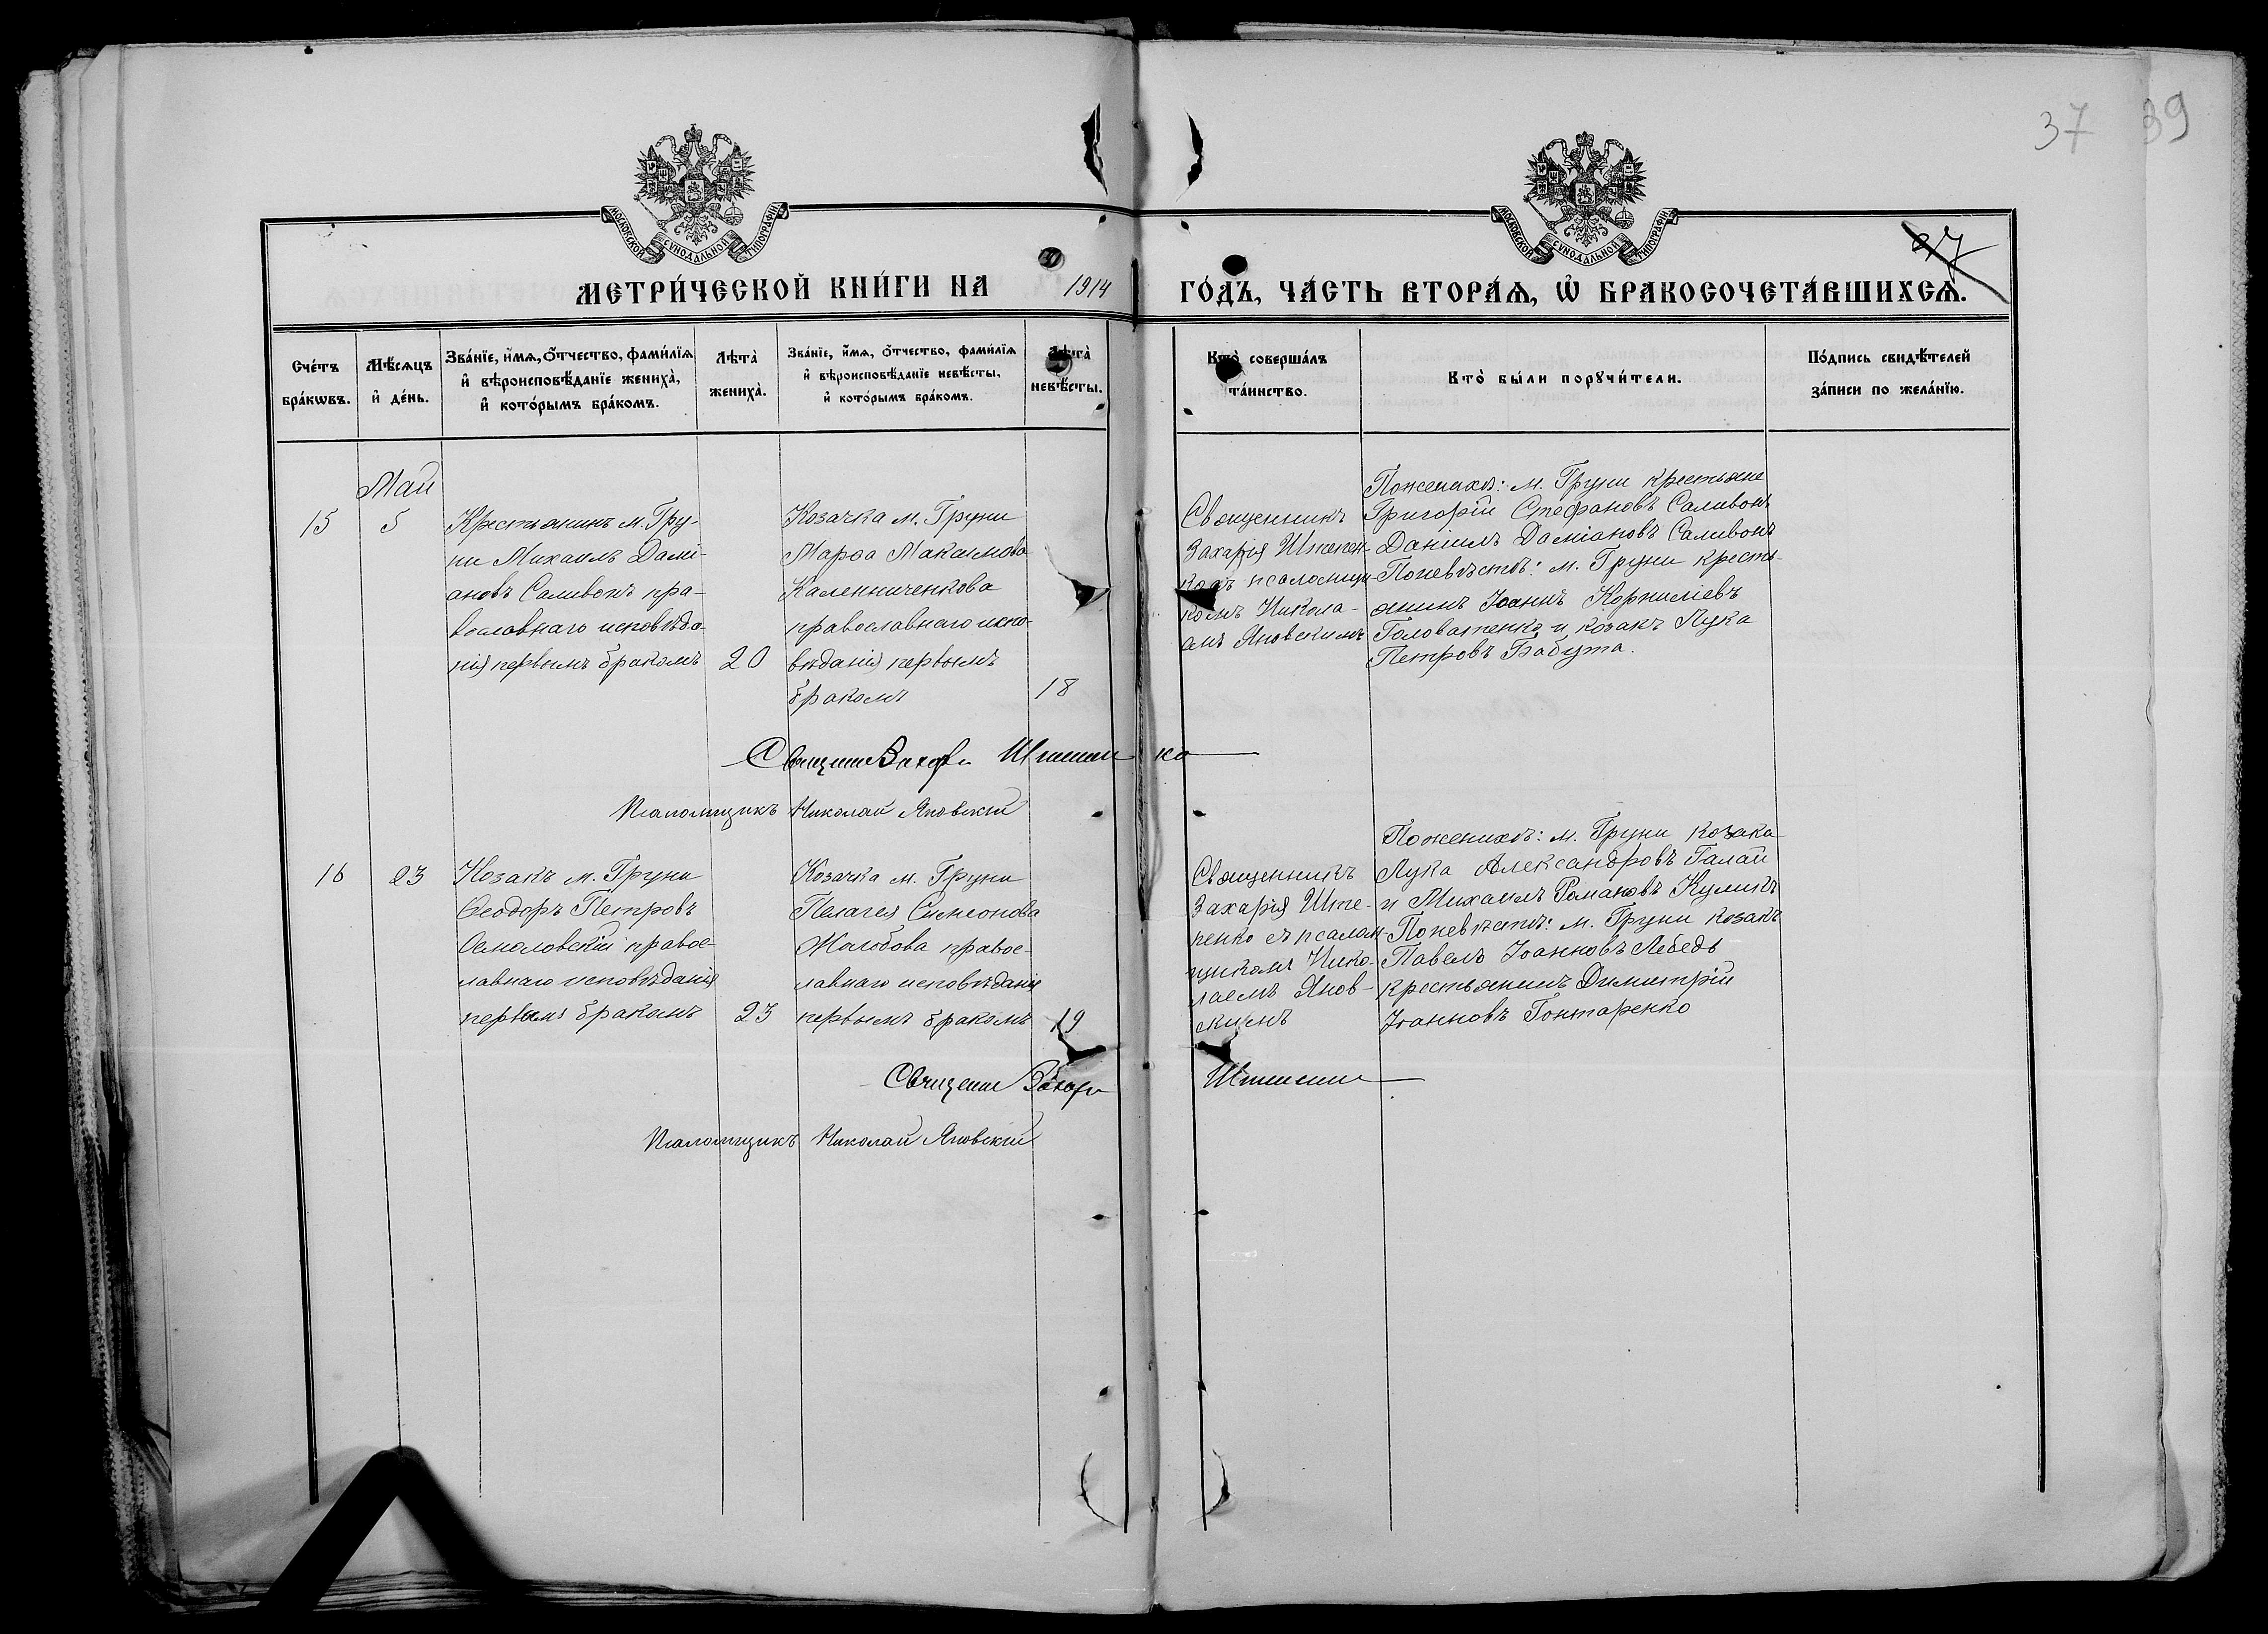 37 39
МОСКОВСКОЙ СѴНОДАЛЬНОЙ ТИПОГРАФІИ
МОСКОВСКОЙ СѴНОДАЛЬНОЙ ТИПОГРАФІИ
37
МЕТРИ́ЧЕСКОЙ КНИ́ГИ НА 1914 ГО́ДЪ, ЧА́СТЬ ВТОРА́Ѧ, Ѡ БРАКОСОЧЕТА́ВШИХСѦ.
Сче́тъ
бра́кѡвъ.
Мѣ́сѧцъ
и҆ де́нь.
Зва́нїе, и҆́мѧ, ѻ҆́тчество, фами́лїѧ
и҆ вѣроисповѣ́данїе жениха̀,
и҆ кото́рымъ бра́комъ.
Лѣта̀
жениха̀.
Зва́нїе, и҆́мѧ, ѻ҆́тчество, фами́лїѧ
и҆ вѣроисповѣ́данїе невѣ́сты,
и҆ кото́рымъ бра́комъ.
Лѣта̀
невѣ́сты.
Кто̀ соверша́лъ
та́инство.
Кто̀ бы́ли порꙋчи́тели.
По́дпись свидѣ́телей
за́писи по жела́нїю.
Май
15
5
Крестьянинъ м. Гру-
ни Михаилъ Дамі-
ановъ Саливонъ пра-
вославнаго исповѣда-
нія первымъ бракомъ
20
Козачка м. Груни
Марѳа Максимова
Каленниченкова
православнаго испо-
вѣданія первымъ
бракомъ
18
Священникъ
Захарія Штепен-
ко съ псаломщи-
комъ Никола-
емъ Яновскимъ
По женихѣ: м. Груни крестьяне
Григорій Стефановъ Саливонъ
Даніилъ Даміановъ Саливонъ
По невѣстѣ: м. Груни кресть-
янинъ Іоаннъ Корниліевъ
Головатенко и козакъ Лука
Петровъ Бабута.
Священникъ Захарія Штепенко
Псаломщикъ Николай Яновскій
16
23
Козакъ м. Груни
Ѳеодоръ Петровъ
Осмоловскій правос-
лавнаго исповѣданія
первымъ бракомъ
23
Козачка м. Груни
Пелагея Симеонова
Жолобова правос-
лавнаго исповѣданія
первымъ бракомъ
19
Священникъ
Захарія Ште-
пенко съ псалом-
щикомъ Нико-
лаемъ Янов-
скимъ
По женихѣ: м. Груни козаки
Лука Александровъ Галай
и Михаилъ Романовъ Куликъ
По невѣстѣ: м. Груни козакъ
Павелъ Іоанновъ Лебедь
крестьянинъ Димитрій
Іоанновъ Гонтаренко
Священникъ Захарія Штепенко
Псаломщикъ Николай Яновскій